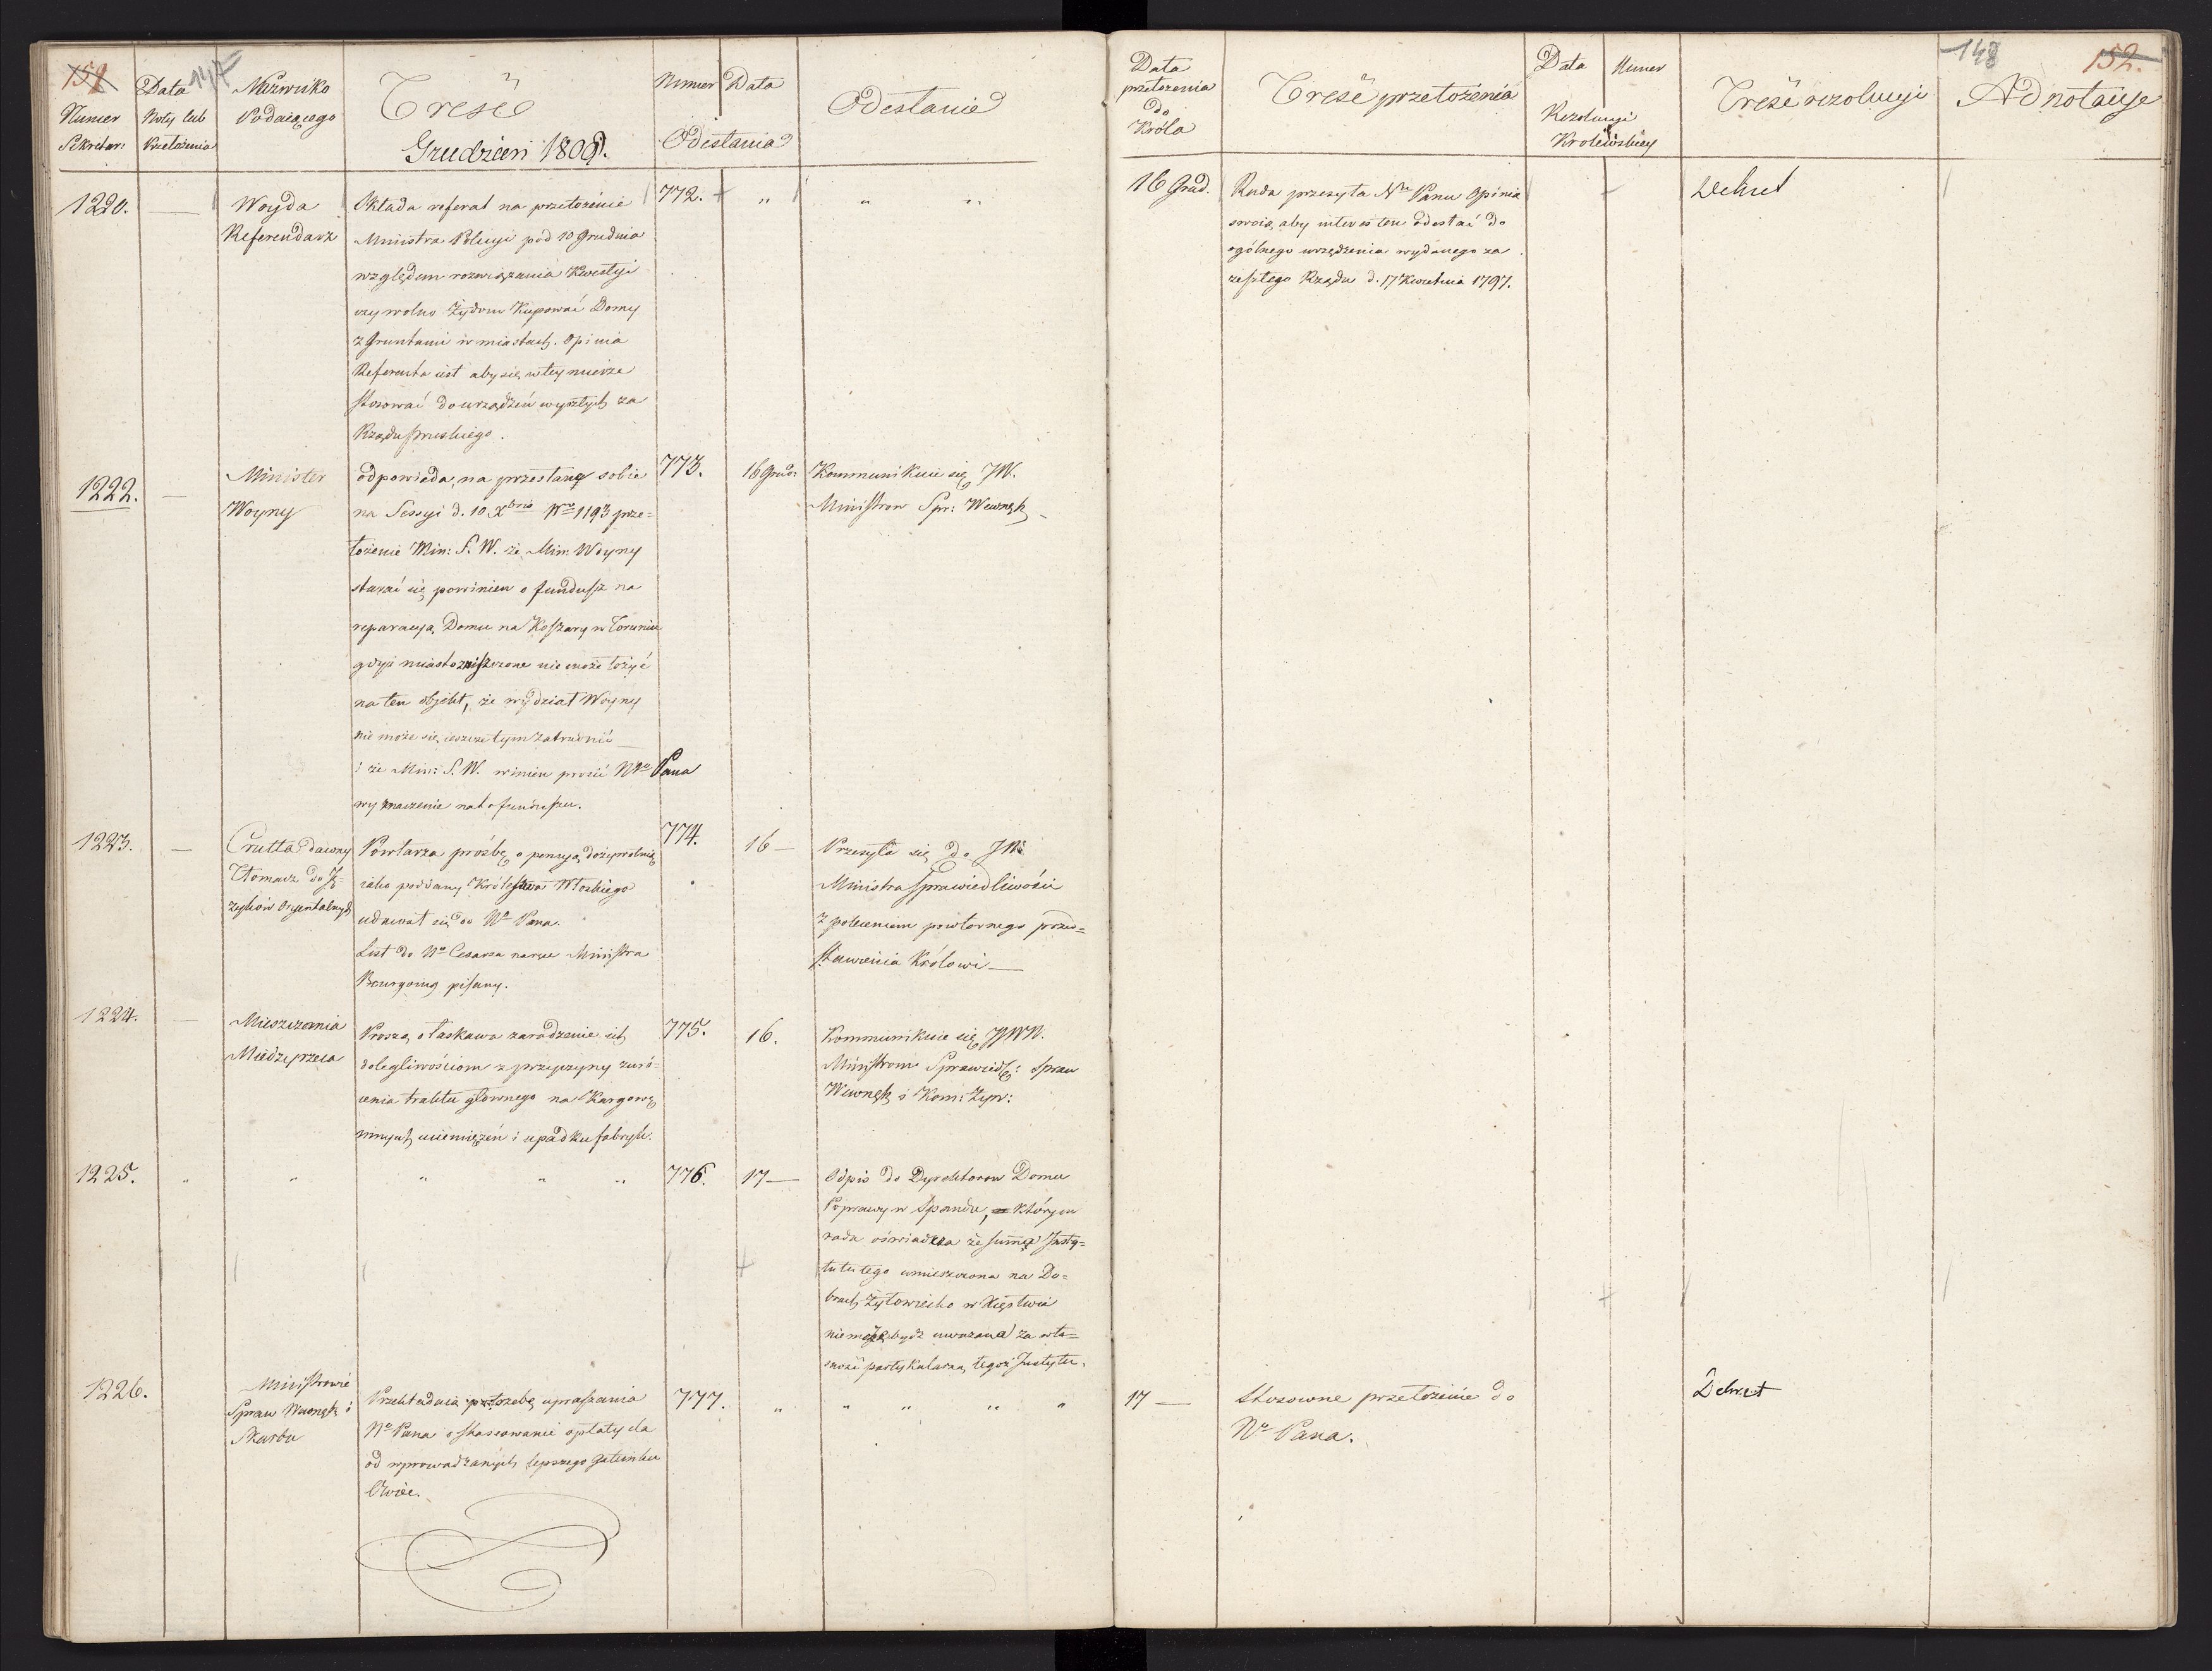 151 147
Numer Sekretar:
Data Noty lub Przełożenia
Nazwisko Podaiącego
Treść
Grudzień 1809.
Numer Data
Odesłania
Odesłanie
1220. —
Woyda
Referendarz
Składa referat na przełożenie
Ministra Policyi pod 10 Grudnia
względem rozwiązania Kwestyi
czy wolno Żydom Kupować Domy
z Gruntami w miastach. Opinia
Referenta iest aby się w tey mierze
stosować do urządzeń wyszłych za
Rządu pruskiego.
772. " " "
1222. —
Minister
Woyny
odpowiada, na przesłane sobie
na Sessyi d. 10 Xbris Nro 1193 prze=
łożenie Min: S. W. że Min: Woyny
starać się powinien o fundusz na
reparacyą Domu na Koszary w Toruniu
gdyż miasto zniszczone nie może łożyć
na ten objekt, że wydział Woyny
nie może się ieszcze tym zatrudnić —
i że Min: S. W. winien prosić Nro Pana
wyznaczenie na to funduszu.
773.
16 Grud:
Kommunikuie się JW.
Ministrow Spr: Wewnętr —
1223. —
Crutta dawny
Tłomacz do Ję=
zyków Oryentalnych
Powtarza prośbę o pensyą dożywotnią
iako poddany Królestwa Włoskiego
udawał się do No Pana.
List do No Cesarza na ręce Ministra
Bourgoing pisany.
774.
16 —
Przesyła się do JW
Ministra Sprawiedliwości
z poleceniem powtornego przed=
stawienia Królowi —
1224. —
Mieszczanie
Miedzyrzecza
Proszą o łaskawe zaradzenie ich
dolegliwościom z przyczyny zwró=
cenia traktu głównego na Kargowę
innych uciemiężeń i upadku fabryk.
775.
16.
Kommunikuie się JJWW.
Ministrom Sprawiedl: Spraw
Wewnętr i Kom: Żyw:
1225. " " " " "
776.
17 —
Odpis do Dyrektorow Domu
Poprawy w Spandu, którym
rada oświadcza że summa Insty=
tutu tego umieszczona na Do=
brach Żytowiecko w Xięstwie
nie może bydź uważana za wła=
sność partykularną tegoż Instytu.
1226.
Ministrowie
Spraw Wewnętr i
Skarbu
Przekładaią potrzebę upraszania
No Pana o skassowanie opłaty cła
od wprowadzanych lepszego gatunku
Owiec.
777. " " " " "
148 152.
Data przełożenia do Króla
Treść przełożenia
Data Numer
Rezolucyi Królewskiey
Treść rezolucyi
Adnotacye
16 Grud.
Rada przesyła No Panu Opinią
swoią, aby interes ten odesłać do
ogólnego urządzenia wydanego za
zeszłego Rządu d. 17 Kwietnia 1797.
Dekret
17 —
Stosowne przełożenie do
No Pana.
Dekret